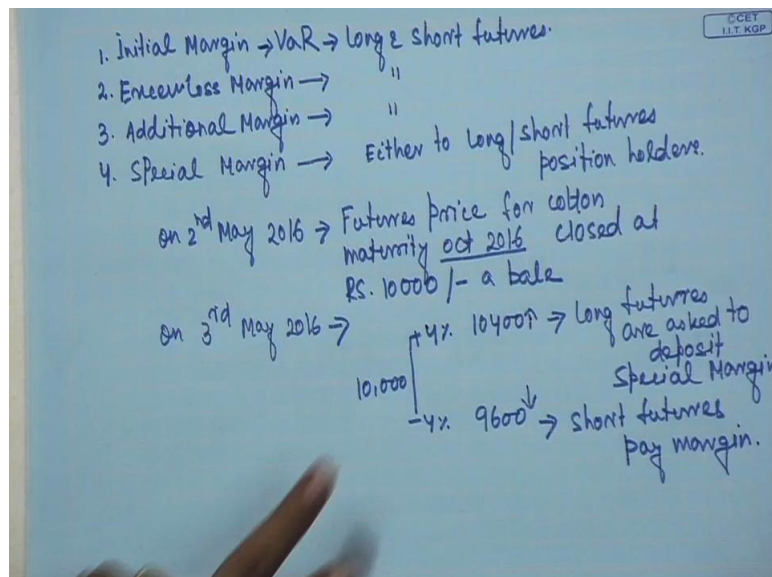 ©CET
I.I.T. KGP
1. Initial Margin → VaR → Long & Short futures.
2. Exceem Loss Margin → "
3. Additional Margin → "
4. Special Margin → Either to Long/short futures
position holders.
on 2nd May 2016 → Futures price for cotton
maturity oct 2016 closed at
RS. 10000/- a bale
on 3rd May 2016 →
+4% 10400↑ → Long futures
are asked to
deposit
Special Margin
10,000
-4% 9600↓ → short futures
pay margin.